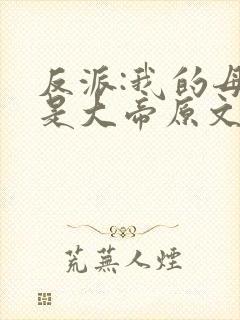 反派:我的母
是大帝原文
荒蕪人煙